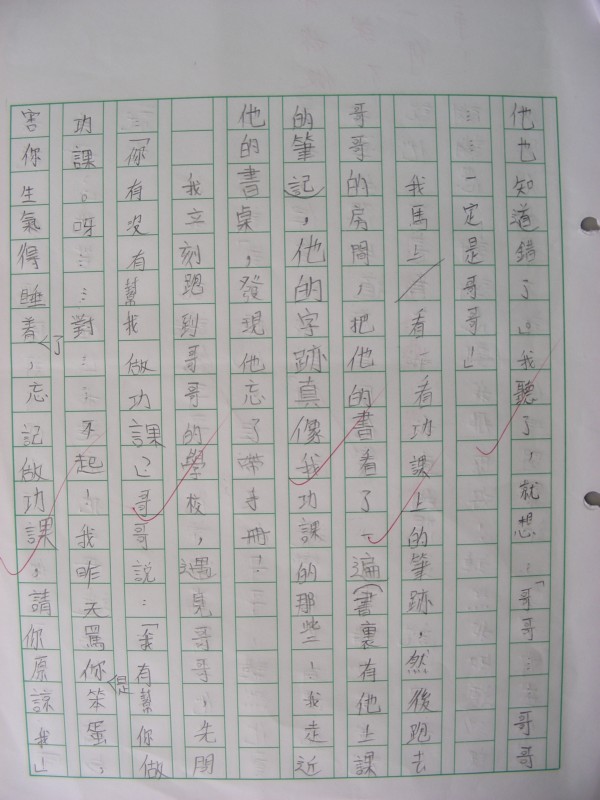 他也知道錯了。」我聽了,就想:「哥哥……哥哥
……一定是哥哥!」
我馬上看一看功課上的筆跡,然後跑去
哥哥的房間,把他的書看了一遍(書裏有他上課
的筆記),他的字跡真像我功課的那些!我走近
他的書桌,發現他忘了帶手冊!
我立刻跑到哥哥的學校,遇見哥哥,先問
:「你有沒有幫我做功課?」哥哥說:「我有幫你做
功課。呀……對……不起!我昨天罵你是笨蛋,
害你生氣得睡着了,忘記做功課,請你原諒我」